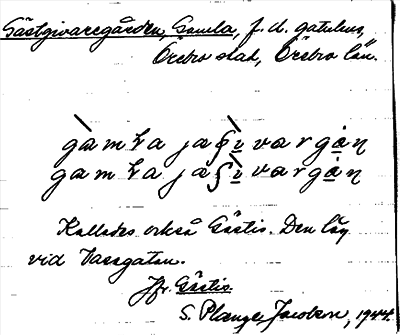 Gästgivaregården, Gamla, f. d. gatuhus,
Örebro stad, Örebro län.
gàmļa jaʃìvargȧn̥
gamļa jaʃìvargȧn̥
Kallades också Gästis. Den låg
vid Vasagatan.
Jfr. Gästis.
S. Plange Jacobson, 1944.